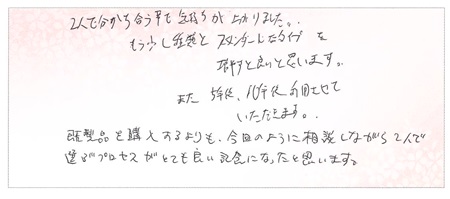 2人で分かち合う事も気持ちが上がりました。
もう少し種類とスタンダードしたタイプを
増すと良いと思います。
また5年後、10年後利用させて
いただきます。
既製品を購入するよりも、今回のように相談しながら2人で
選ぶプロセスがとても良い記念になったと思います。